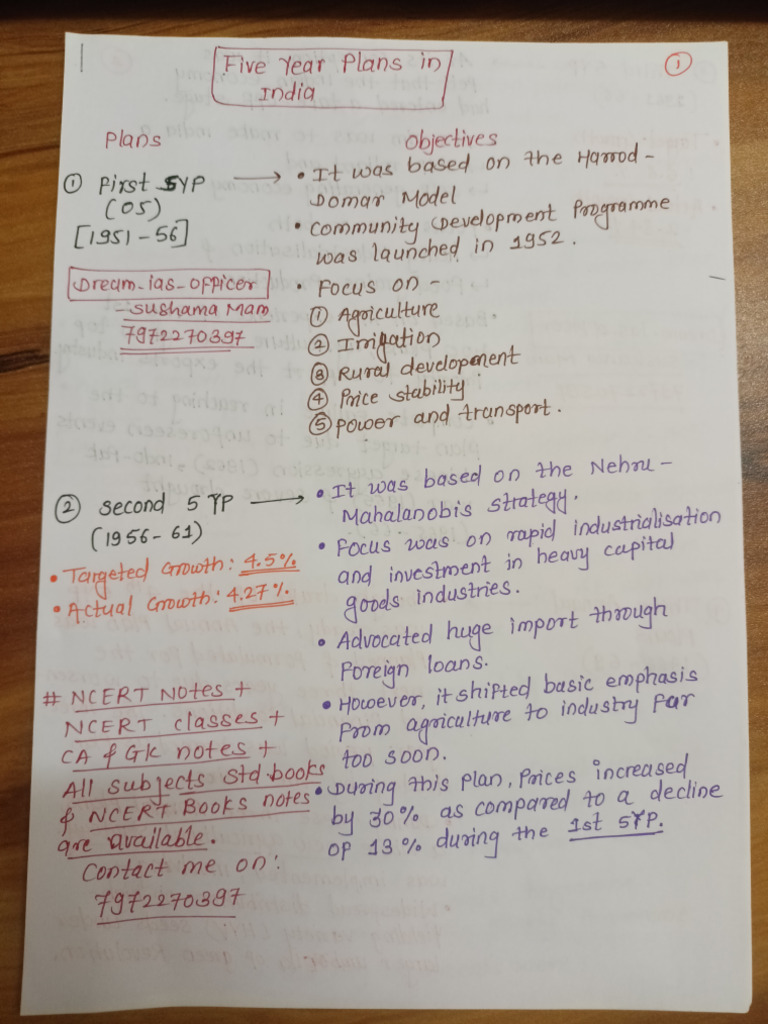 Five Year Plans in
India
1
Plans
Objectives
① First 5YP
(05)
[1951-56]
• It was based on the Harrod-
Domar Model
• Community Development Programme
was launched in 1952.
Dream-ias-officer
- Sushama Mam
7972270397
• Focus on -
① Agriculture
② Irrigation
③ Rural development
④ Price stability
⑤ power and transport.
② second 5 YP
(1956-61)
• Targeted Growth: 4.5%
• Actual Growth: 4.27%
• It was based on the Nehru-
Mahalanobis strategy.
• Focus was on rapid industrialisation
and investment in heavy capital
goods industries.
• Advocated huge import through
Foreign loans.
• However, it shifted basic emphasis
From agriculture to industry far
too soon.
• During this plan, Prices increased
by 30% as compared to a decline
of 13% during the 1st 5YP.
# NCERT Notes +
NCERT classes +
CA & GK notes +
All subjects std books
& NCERT Books notes
are available.
Contact me on:
7972270397